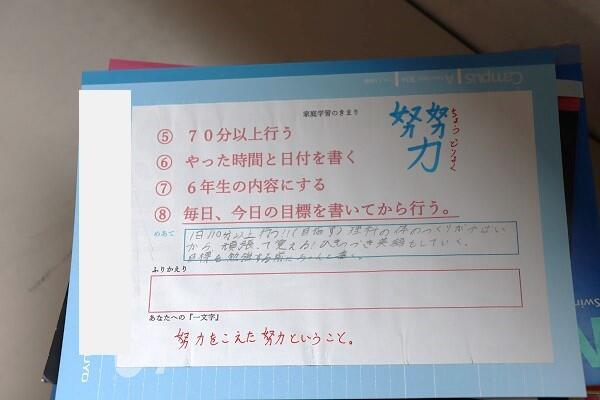 Campus
家庭学習のきまり
⑤ 70分以上行う
⑥ やった時間と日付を書く
⑦ 6年生の内容にする
⑧ 毎日、今日の目標を書いてから行う。
努努力
ちょうどりょく
めあて
1日110分以上行う!!(目指す)理科の体のつくりが
から、頑張って覚える!
目標を勉強する前にちゃんと書く。
ふりかえり
あなたへの「一文字」
努力をこえた努力ということ。